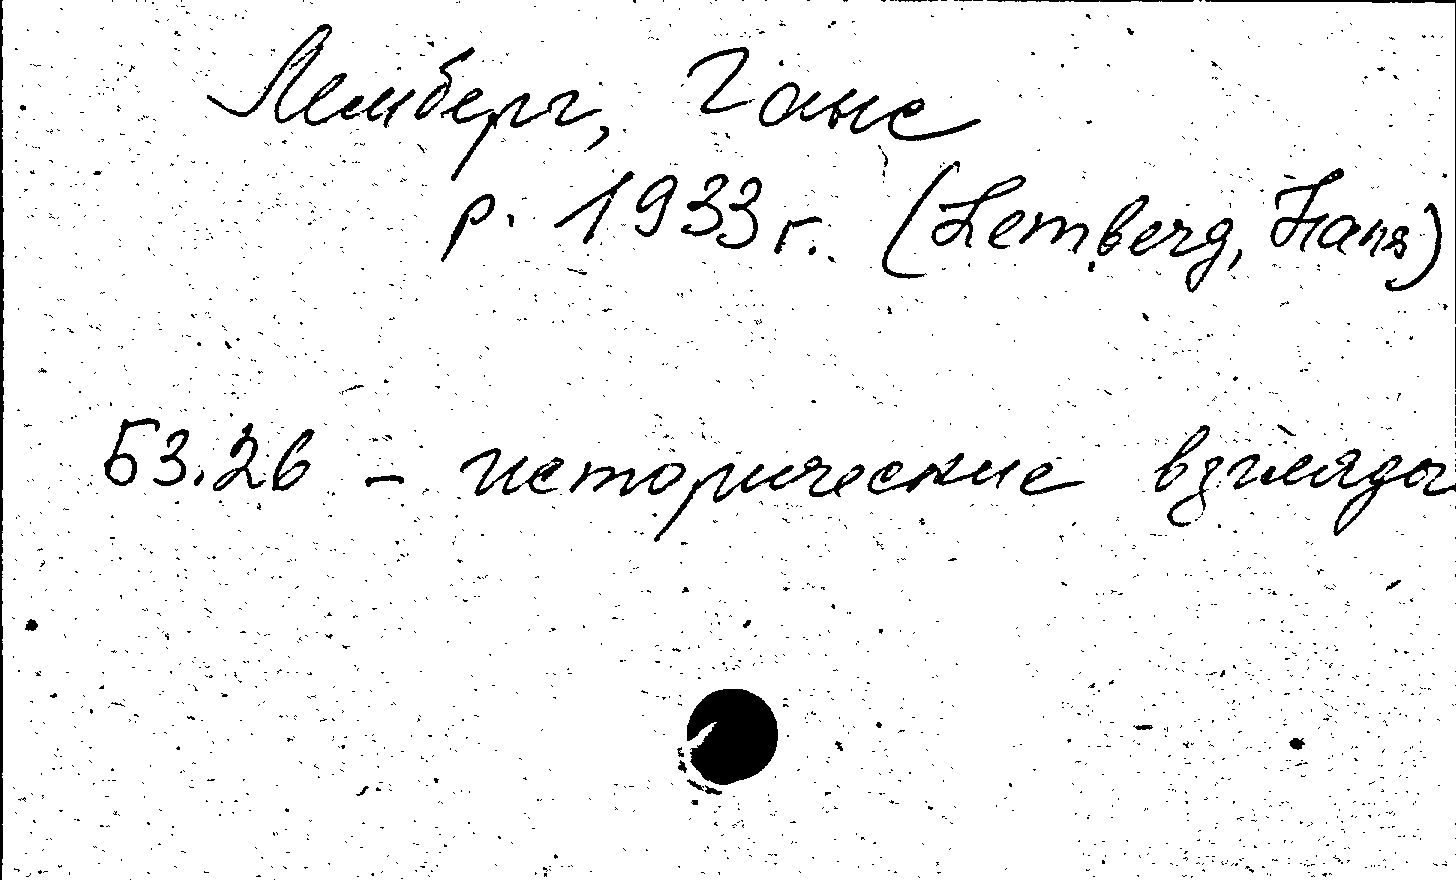 Лемберг, Ганс
р. 1933 г. (Lemberg, Hans)
Б3.2в - исторические взгляды